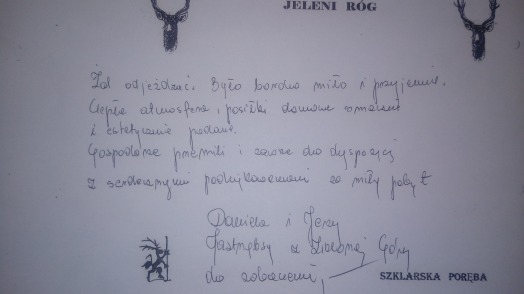 JELENI RÓG
Żal odjeżdżać. Było bardzo miło i przyjemnie.
Ciepła atmosfera, posiłki domowe smaczne
i estetycznie podane.
Gospodarze przemili i zawsze do dyspozycji
z serdecznymi podziękowaniami za miły pobyt
Daniela i Jerzy
Jastrzębscy z Zielonej Góry
do zobaczenia,
SZKLARSKA PORĘBA